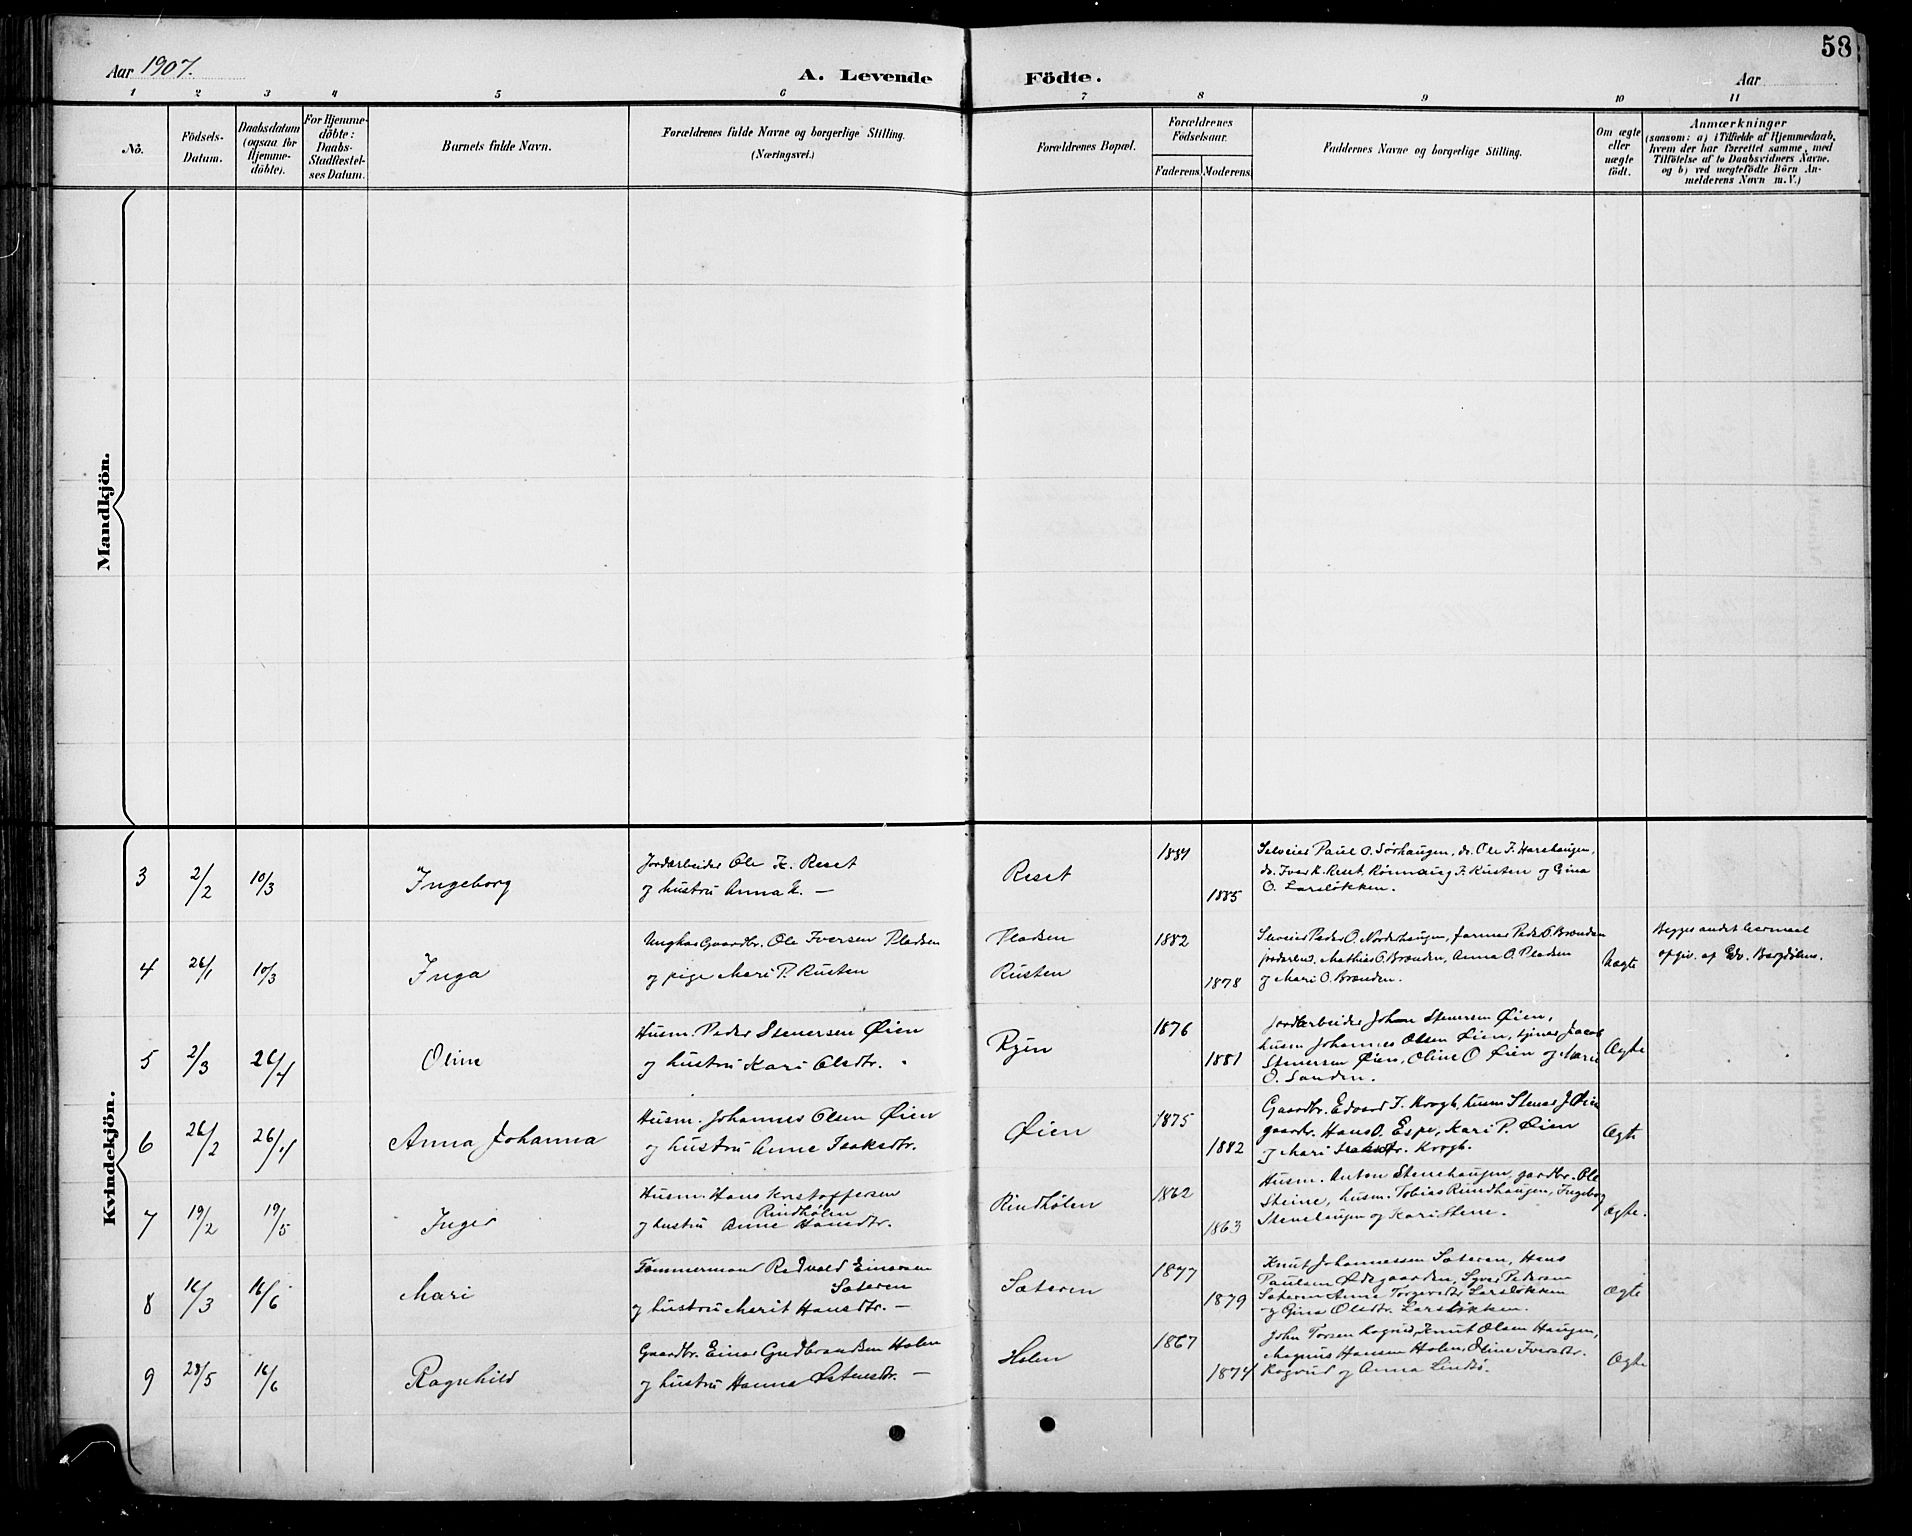 58
Aar 1907.
A. Levende
Födte.
Aar
1 2 3 4 5 6 7 8 9 10 11
No.
Födsels-
Datum.
Daabsdatum
(ogsaa for
Hjemme-
döbte).
For Hjemme-
döbte:
Daabs-
Stadfestel-
ses Datum.
Barnets fulde Navn.
Forældrenes fulde Navne og borgerlige Stilling.
(Næringsvei.)
Forældrenes Bopæl.
Forældrenes
Födselsaar.
Faderens Moderens
Faddernes Navne og borgerlige Stilling.
Om ægte
eller
uægte
födt.
Anmærkninger
(saasom: a) i Tilfælde af Hjemmedaab,
hvem der har forrettet samme, med
Tilföielse af to Daabsvidners Navne.
og b) ved uægtefödte Börn An-
melderens Navn m. V.)
Mandkjön.
Kvindekjön.
3
2/2
10/3
Ingeborg
Jordarbeider Ole K. Reset
og hustru Anna —
Reset
1884
1885
Selveier Paul O. Sørhaugen, do. Ole T. Harehaugen,
do. Iver K. Reset, Rønnaug F. Rusten og Gina
O. Larsløkken.
4
26/1
10/3
Inga
Ungkar Gaardbr. Ole Iversen Pladsen
og pige Mari P. Rusten
Pladsen
Rusten
1882
1878
Selveier Peder O. Nordhaugen, farmer Peder P. Brænden
jordarb. Mathias P. Brænden, Anna O. Pladsen
og Mari O. Brænden.
Uægte
Begges andet barn
opgiv. af Edv. Bergdølmo.
5
2/3
26/4
Oline
Husm. Peder Stenersen Øien
og hustru Kari Olsdtr.
Ryin
1876
1881
Jordarbeider Johan Stenersen Øien,
husm Johannes Olsen Øien, tjener Jacob
Stenersen Øien, Oline O Øien og Marie
O. Sanden.
Ægte
6
26/2
26/4
Anna Johanna
Husm. Johannes Olsen Øien
og hustru Anne Isaksdtr.
Øien
1875
1882
Gaardbr. Edvard I. Krogh, husm Stener J Øien
gaardbr. Hans O. Espe, Kari P. Øien
og Mari Isaksdtr. Krogh.
Ægte
7
19/2
19/5
Inger
Husm. Hans Kristoffersen
Rindhølen
og hustru Anne Hansdtr.
Rindhølen
1862
1863
Husm. Anton Stenehaugen, gaardbr. Ole
Steine, husm. Tobias Rundhaugen, Ingeborg
Stenehaugen og Kari Stene.
Ægte.
8
16/3
16/6
Mari
Tømmermand Redvald Einarsen
Sæteren
og hustru Marit Hansdtr. —
Sæteren
1877
1879
Knut Johannessen Sæteren, Hans
Paulsen Ødegaarden, Syver Pedersen
Sæteren Anne Torgersdtr Larsløkken
og Gina Olsdtr. Larsløkken.
Ægte
9
28/5
16/6
Ragnhild
Gaardbr. Einar Gudbrandsen Holen
og hustru Hanna —
Holen
1867
1874
John Torsen Kogrud, Knut Olsen Haugen,
Magnus Hansen Holen, Oline Iversdtr.
Kogrud og Anna Lindsø.
Ægte